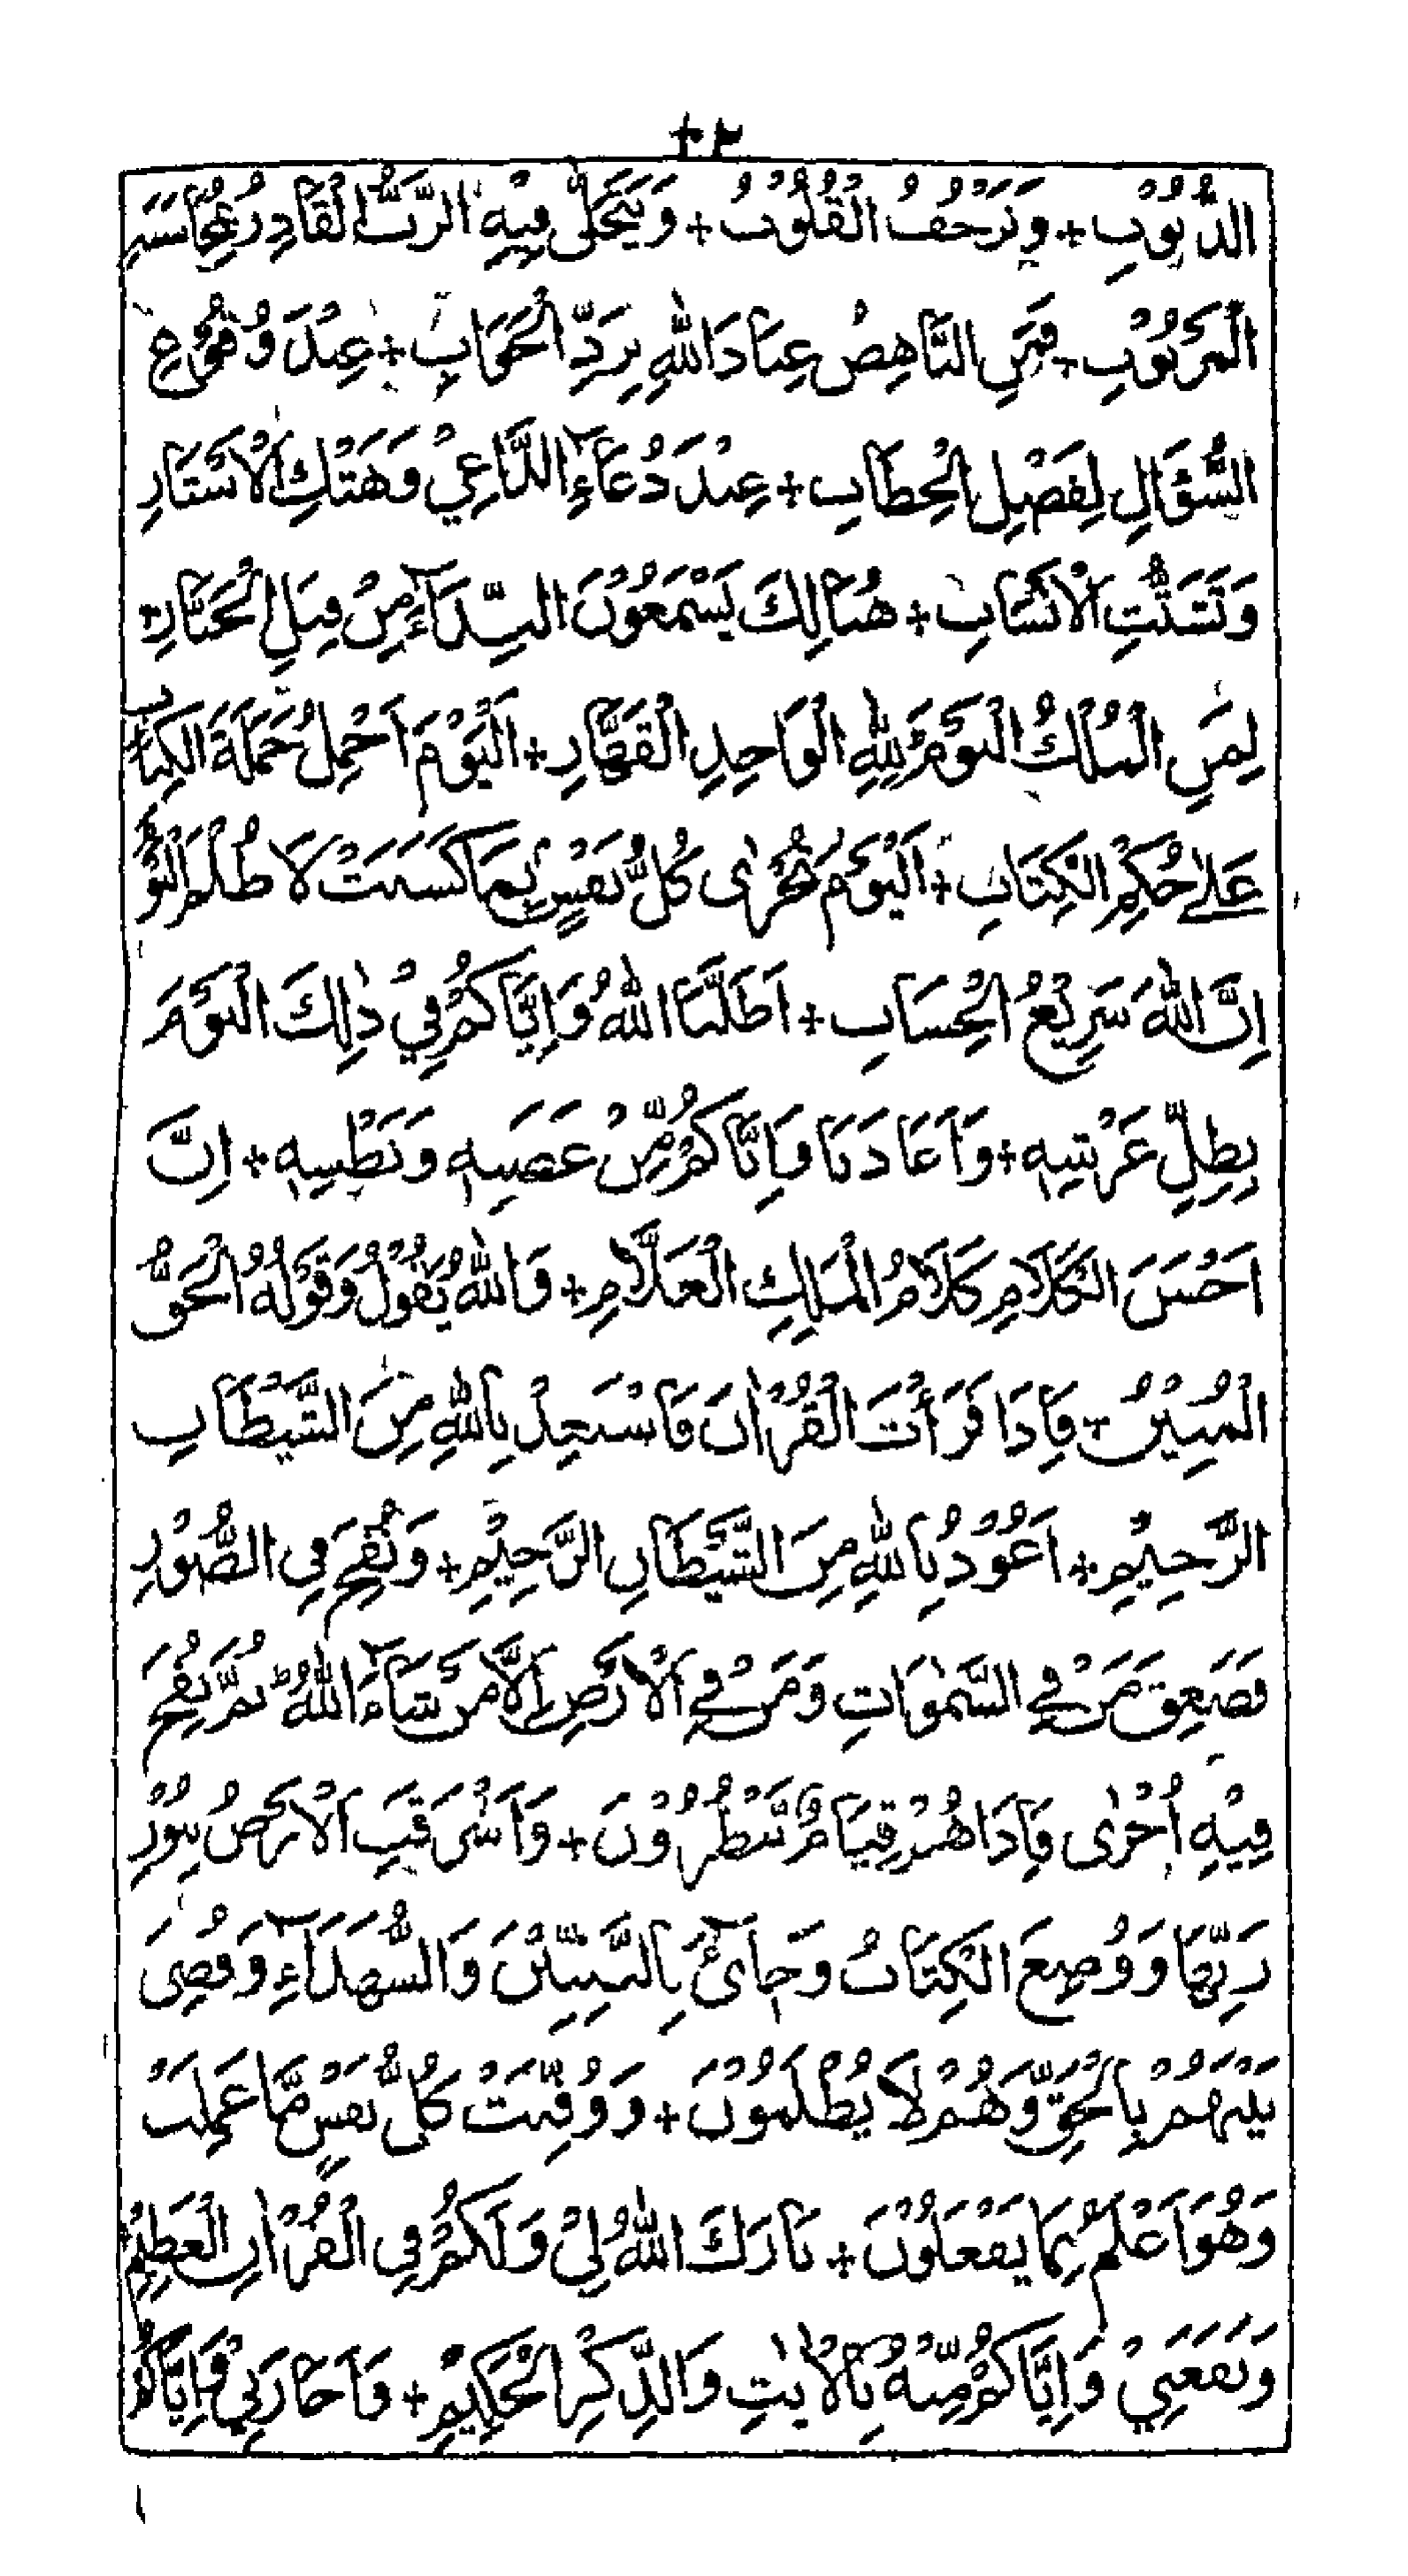 الذُّنُوْبِ + وَتَرْجُفُ الْقُلُوْبُ + وَيَتَجَلّٰى فِيْهِ الرَّبُّ الْقَادِرُ لِمُحَاسَبَةِ
الْمَرْبُوْبِ + فَمَنِ النَّاهِضُ عِبَادَ اللهِ بِرَدِّ الْجَوَابِ + عِنْدَ وُقُوْعِ
السُّؤَالِ لِفَصْلِ الْخِطَابِ + عِنْدَ دُعَآءِ الدَّاعِيْ وَهَتْكِ الْاَسْتَارِ
وَتَشَتُّتِ الْاَنْسَابِ + هُنَالِكَ يَسْمَعُوْنَ النِّدَآءَ مِنْ قِبَلِ الْجَبَّارِ +
لِمَنِ الْمُلْكُ الْيَوْمَ لِلّٰهِ الْوَاحِدِ الْقَهَّارِ + اَلْيَوْمَ اَحْمِلُ حَمَلَةَ الْكِتَابِ
عَلٰى حُكْمِ الْكِتَابِ + اَلْيَوْمَ تُجْزٰى كُلُّ نَفْسٍ بِمَا كَسَبَتْ لَا ظُلْمَ الْيَوْمَ
اِنَّ اللهَ سَرِيْعُ الْحِسَابِ + اَظَلَّنَا اللهُ وَاِيَّاكُمْ فِيْ ذٰلِكَ الْيَوْمَ
بِظِلِّ عَرْشِهٖ + وَاَعَاذَنَا وَاِيَّاكُمْ مِّنْ غَضَبِهٖ وَبَطْشِهٖ + اِنَّ
اَحْسَنَ الْكَلَامِ كَلَامُ الْمَلِكِ الْعَلَّامِ + وَاللهُ يَقُوْلُ وَقَوْلُهُ الْحَقُّ
الْمُبِيْنُ + فَاِذَا قَرَأْتَ الْقُرْاٰنَ فَاسْتَعِذْ بِاللهِ مِنَ الشَّيْطَانِ
الرَّجِيْمِ + اَعُوْذُ بِاللهِ مِنَ الشَّيْطَانِ الرَّجِيْمِ + وَنُفِخَ فِى الصُّوْرِ
فَصَعِقَ مَنْ فِي السَّمٰوَاتِ وَمَنْ فِي الْاَرْضِ اِلَّا مَنْ شَآءَ اللهُ ؕ ثُمَّ نُفِخَ
فِيْهِ اُخْرٰى فَاِذَا هُمْ قِيَامٌ يَّنْظُرُوْنَ + وَاَشْرَقَتِ الْاَرْضُ بِنُوْرِ
رَبِّهَا وَوُضِعَ الْكِتَابُ وَجِآئَ بِالنَّبِيِّيْنَ وَالشُّهَدَآءِ وَقُضِىَ
بَيْنَهُمْ بِالْحَقِّ وَهُمْ لَا يُظْلَمُوْنَ + وَوُفِّيَتْ كُلُّ نَفْسٍ مَّا عَمِلَتْ
وَهُوَ اَعْلَمُ بِمَا يَفْعَلُوْنَ + بَارَكَ اللهُ لِيْ وَلَكُمْ فِى الْقُرْاٰنِ الْعَظِيْمِ +
وَنَفَعَنِيْ وَاِيَّاكُمْ مِّنْهُ بِالْاٰيٰتِ وَالذِّكْرِ الْحَكِيْمِ + وَاَجَارَنِيْ وَاِيَّاكُمْ